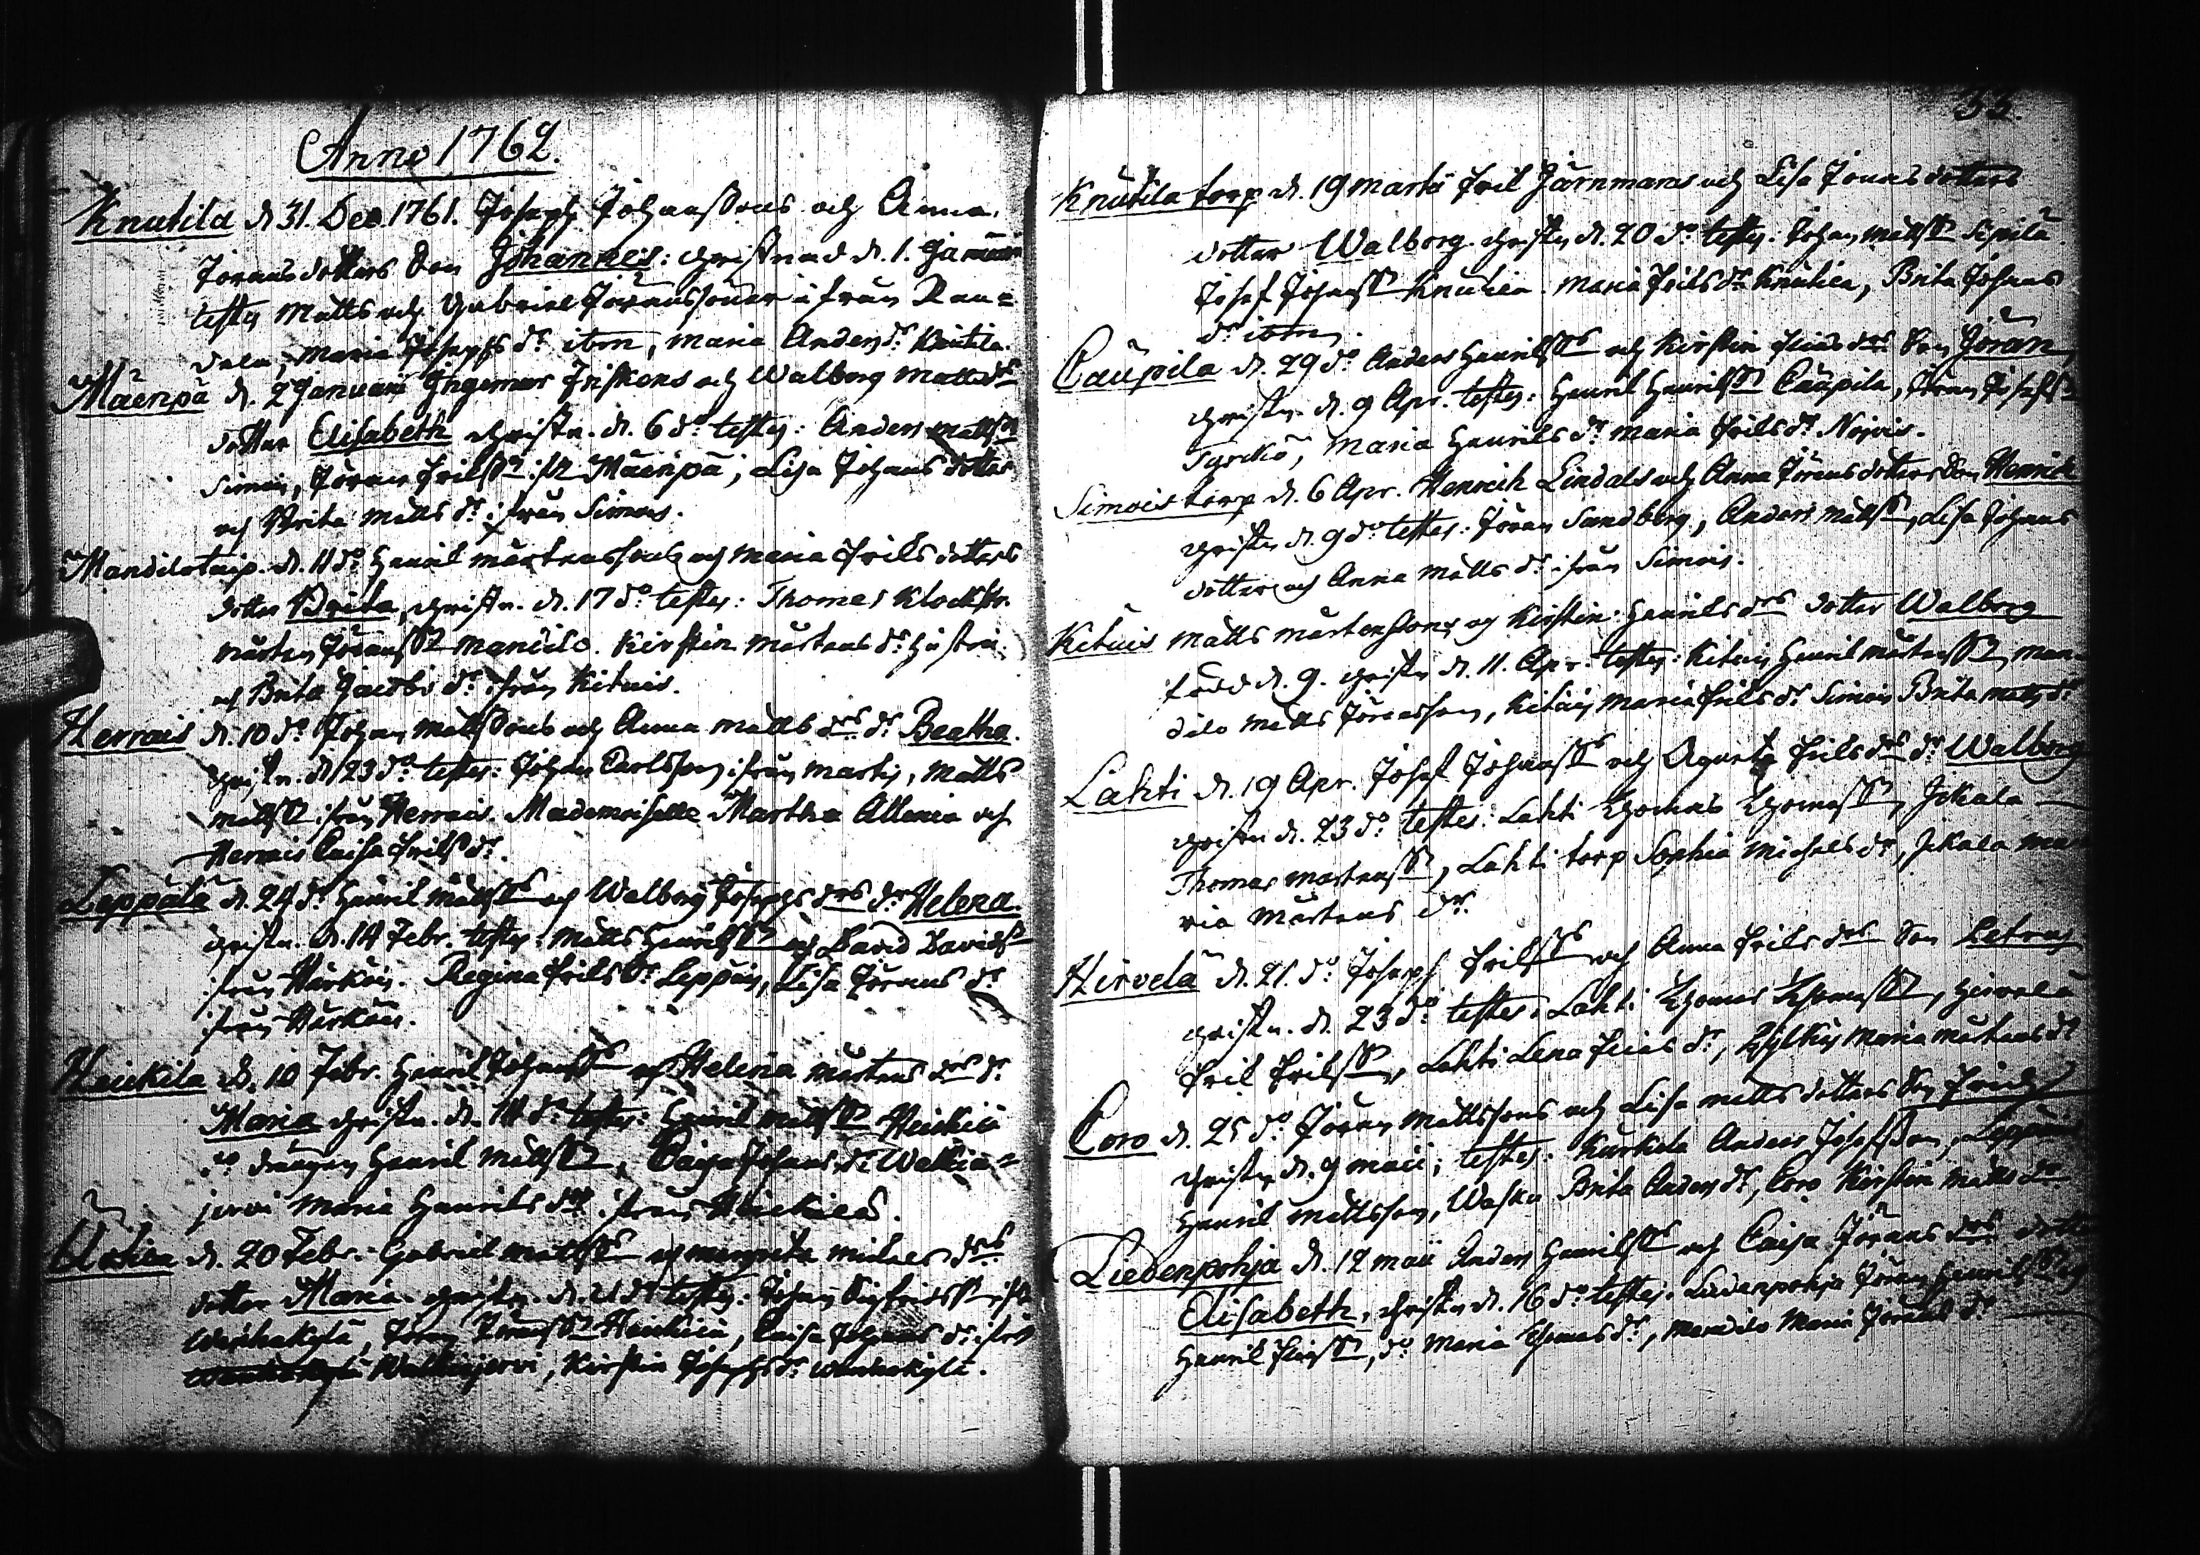 Anno 1762.
Knutila d. 31. Dec. 1761. Joseph Johanssons och Anna
Jöransdotters Son Johannes: christnad d. 1. Januari
testes Matts och Gabriel Jöranssöner ifrån Ran=
dala, Maria Josephs dr ibm, Maria Anders dr Knutila.
Mäenpä d. 2 Januarii Ingemar Friskens och Walborg Matts drs
dotter Elisabeth christn. d. 6 do testes: Anders Mattss
Simois, Jöran Erikss ifr Mäenpä, Lisa Johans dotter
och Brita Matts dr ifrån Simois.
Mandilo torp. d. 11 do Henrik Mårtenssons och Maria Eriks dotters
dotter Brita, christn. d. 17 do testes: Thomas Klockstr.
Mårten Jöranss Mandilo. Kirstin Mårtens dr hustru
och Brita Jacobs dr ifrån Kituis.
Herrais d. 10 do Johan Mattssons och Anna Matts drs dr Beatha.
christn. d. 23 do testes: Johan Carlsson ifrån Martis, Matts
Mattss ifrån Herrais. Mademoiselle Martha Allenia och
Herrais Caisa Eriks dr.
Leppälä d. 24 do Henrik Mattss och Walborg Josephs drs dr Helena.
christn. d. 14 Febr. testes: Matts Henrikss och David Davidss
ifrån Härköis. Regina Eriks dr Leppäis, Lisa Jörans dr
ifrån Härköis.
Heickila d. 10 Febr. Henrik Johanss och Helena Mårtens drs dr
Maria christn. d. 14 do testes: Henrik Mattss Heickilä
do drängen Henrik Mattss, Caisa Johans dr Walkia=
jervi Maria Henriks dr ifrån Heickilä.
d. 20 Febr. Gabriel Mattss och Margreta Michels drs
dotter Maria christn. d. 21 do testes: Johan Sigfridss ifr
Wanhakylä, Jöran Jöranss Heickilä, Caisa Johans dr ifrån
Wanhakylä Walkiajervi, Kirstin Josephs dr Wanhakylä.
33.
Knutila torp d. 19 Martii Erik Järnmans och Lisa Jöransdotters
dotter Walborg christn d. 20 do testes: Johan Mattss Sipilä
Josef Johanss Knutila. Maria Eriks dr Knutila, Brita Johans
dr ibm.
Caupila d. 29 do Anders Henrikss och Kirstin Eriks drs Son Jöran
christn. d. 9 Apr. testes: Henrik Henrikss Caupila, Jöran Josephs
Tyrckö, Maria Henriks dr Maria Eriks dr Nopois.
Simois torp d. 6 Apr. Henrich Lindals och Anna Jöransdotters Son Henrich
christn d. 9 do testes: Jöran Sandberg, Anders Mattss, Lisa Johans
dotter och Anna Matts dr ifrån Simois.
Kituis Matts Mårtenssons och Kirstin Henriks drs dotter Walborg
född d. 9. christn d. 11. Apr. testes: Kituis Henrik Mårtenss, Man-
dilo Matts Jöransson, Kituis Maria Eriks dr Simois Brita Matts dr
Lahti d. 19 Apr. Josef Johanss och Agneta Eriks drs dr Walborg
christn d. 23 do testes: Lahti Thomas Thomass, Jikala
Thomas Mårtenss, Lahti torp Sophia Michels dr, Jikala Ma-
ria Mårtens dr.
Hirvelä d. 21. do Joseph Erikss och Anna Eriks drs Son Petrus
christn. d. 23 do testes: Lahti Thomas Thomass, Hirvelä
Erik Erikss, Lahti Lena Eriks dr, Hylkis Maria Mårtens dr
Coro d. 25 do Jöran Mattssons och Lisa Matts dotters Son Erich
christn d. 9 Maii; testes: Kurkela Anders Josefsson, Leppäis
Henrik Mattsson, Waska Brita Anders dr, Coro Kirstin Matts dr
Liedenpohja d. 12 Maii Anders Henrikss och Caisa Jörans drs dotter
Elisabeth, christn d. 16 do testes: Liedenpohja Jöran Henrikss och
Henrik Erikss, do Maria Thomas dr, Mandilo Maria Jörans dr